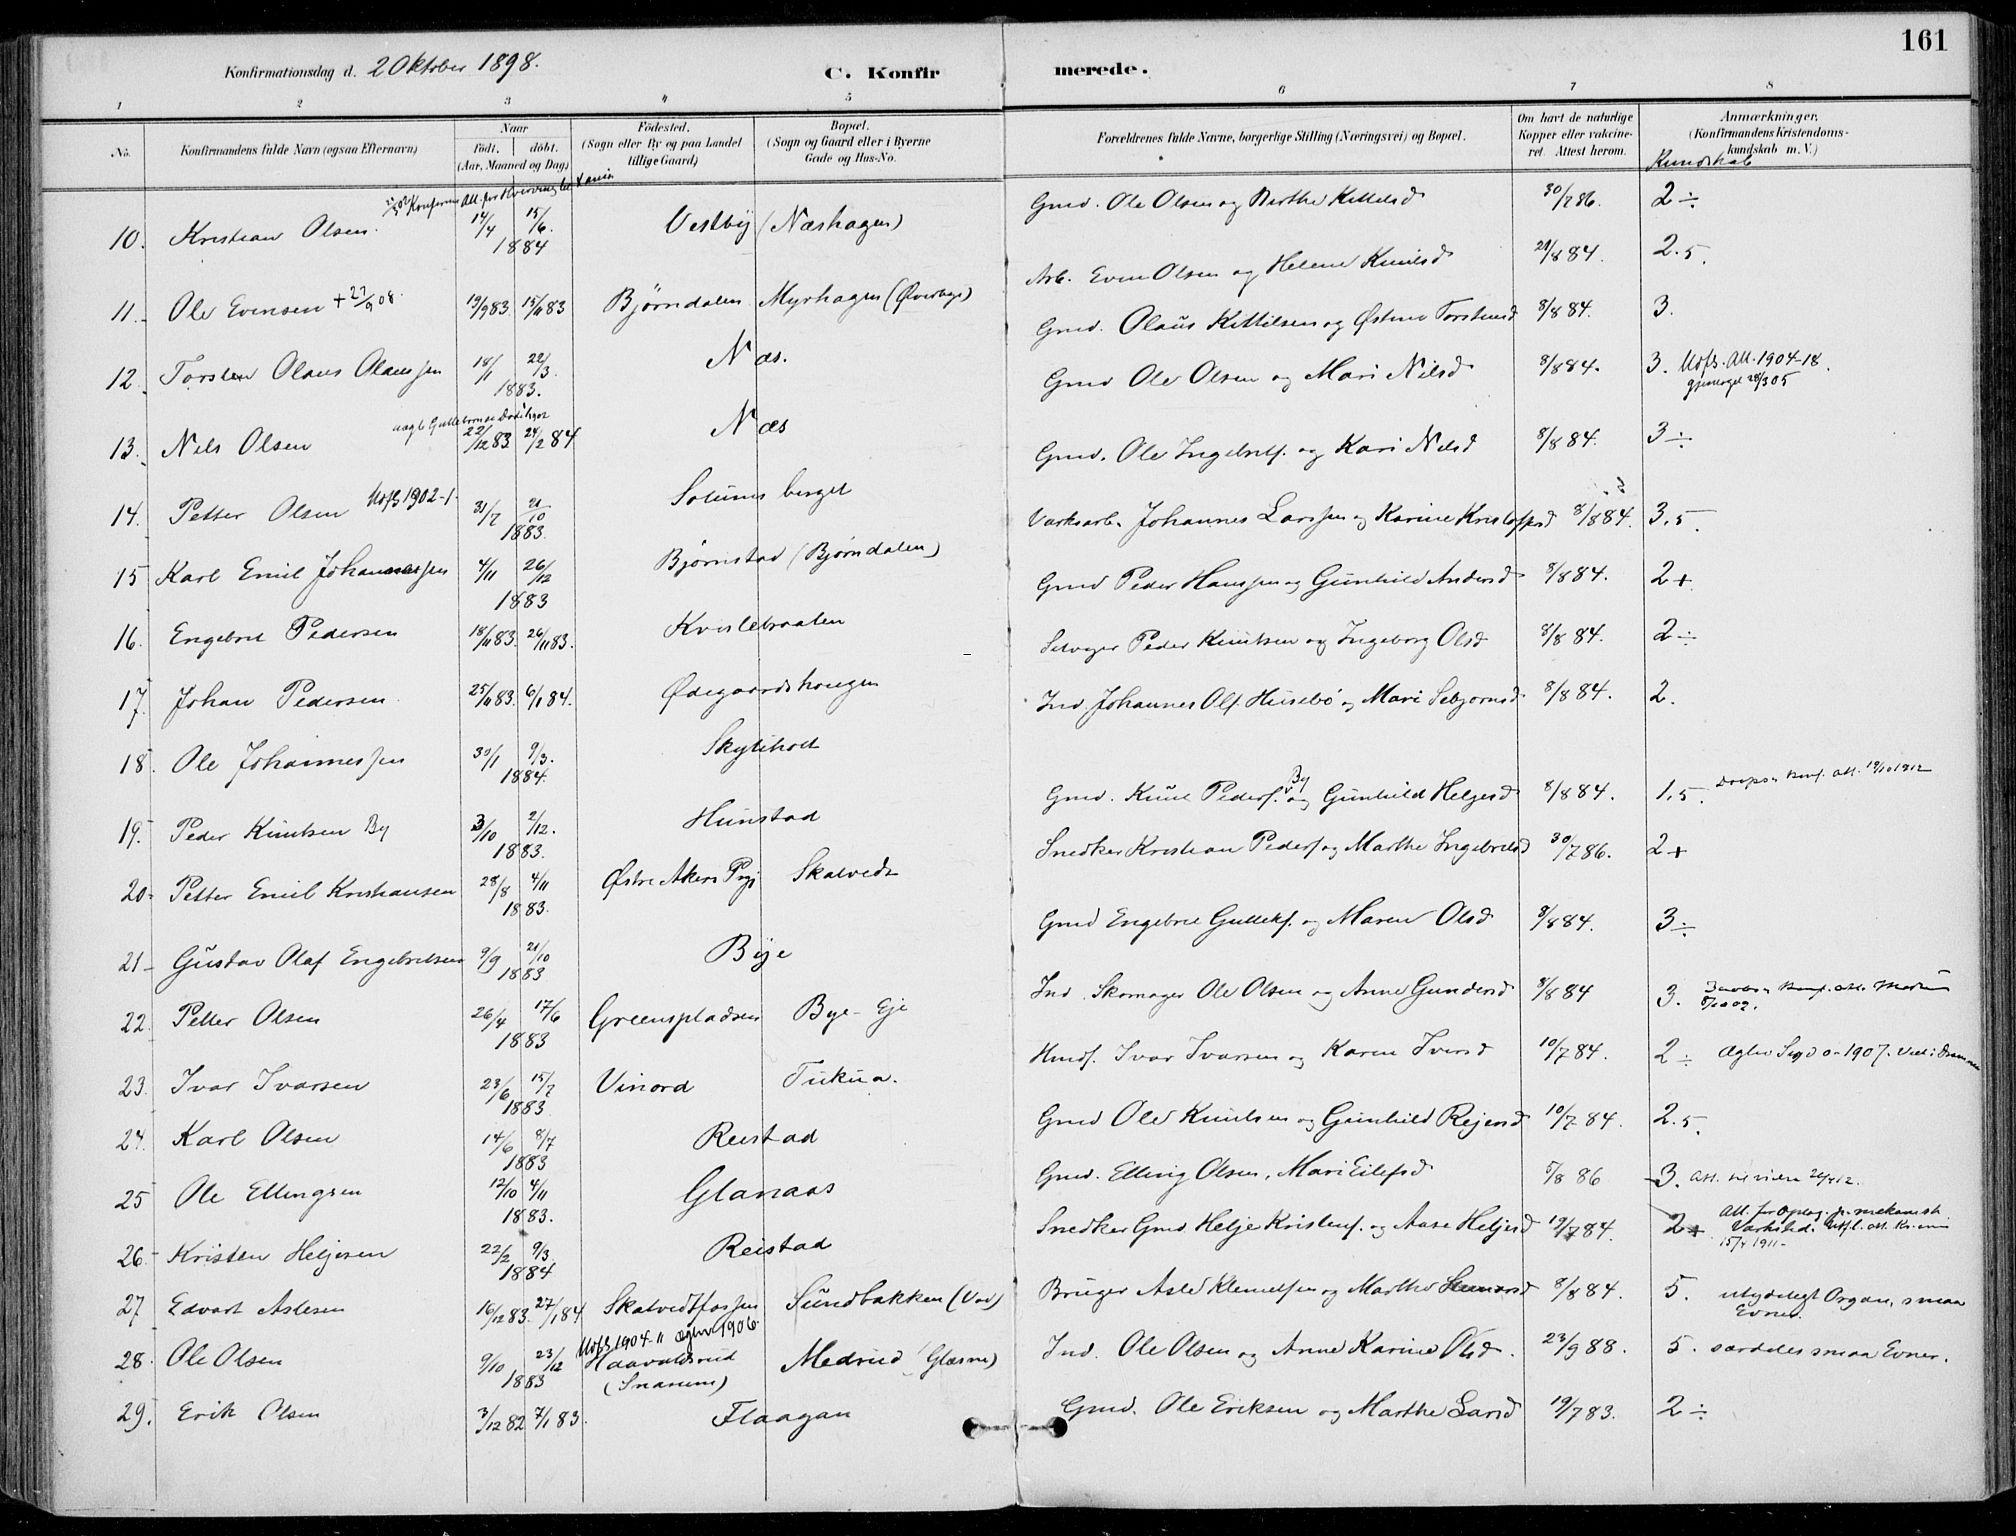 161
Konfirmationsdag d. 2 Oktober 1898. C. Konfirmerede.
1 2 3 4 5 6 7 8
No. Konfirmandens fulde Navn (ogsaa Efternavn) Naar født. døbt. (Aar, Maaned og Dag) Fødested. (Sogn eller By og paa Landet tillige Gaard) Bopæl. (Sogn og Gaard eller i Byerne Gade og Hus-No. Forældrenes fulde Navne, borgerlige Stilling (Næringsvei) og Bopæl. Om havt de naturlige Kopper eller vakcineret. Attest herom. Anmærkninger, (Konfirmandens Kristendomskundskab m. V.)
Kundskab
10. Kristian Olsen. 14/4 15/6. 1884 Vestby (Næshagen) Gmd. Ole Olsen og Berthe Kittelsd 30/7 86. 2÷
11. Ole Evensen + 27/9 08. 19/9 83 15/11 83 Bjørndalen Myrhagen (Øverbye) Arb. Even Olsen og Helene Knutsd 21/8 84. 2.5.
12. Torsten Olaus Olaussen 18/1 22/3. 1883. Næs. Gmd. Olaus Kittilsen og Østine Torstensd 8/8 84. 3.
13. Nils Olsen 22/12 83 24/2 84 Næs Gmd Ole Olsen og Mari Nilsd 8/8 84. 3. Udfl. Att. 1904-18.
28/3 05
14. Petter Olsen Udfl 1902-1- 31/7 21/10 1883. Solumsberget Gmd. Ole Ingebrets. og Kari Nilsd 8/8 84. 3÷
15 Karl Emil Johannessen 4/11 26/12 1883 Bjørnstad (Bjørndalen) Værksarb. Johannes Larssen og Karine Kristofersd 8/8 84. 3.5.
16. Engebret Pedersen 18/11 83. 26/11 83. Kvislebraaten Gmd Peder Hanssen og Gunhild Andersd 8/8 84. 2+
17. Johan Pedersen 25/11 83. 6/1 84. Ødegaardshaugen Selveger Peder Knutsen og Ingeborg Olsd 8/8 84. 2÷
18. Ole Johannessen 30/1 9/3. 1884. Skytiholt Ind Johannes Ols. Husebø og Mari Sebjørnsd 8/8 84. 2.
19. Peder Knutsen By 3/10 2/12. 1883. Hunstad Gmd. Knut Peders. By og Gunhild Helgesd 8/8 84. 1.5. Daabs- Konf. Att. 19/10 1912
20. Petter Emil Kristiansen 28/8 4/11 1883. Østre Akers Pgj Skalvedt Snedker Kristian Peders og Marthe Ingebretsd 30/7 86. 2+
21 Gustav Olaf Engebretsen 9/9 21/10 1883 Bye Gmd Engebret Gulleks. og Maren Olsd 8/8 84. 3÷
22. Petter Olsen 26/4 17/6 1883 Greenspladsen Bye-Eje Ind. Skomager Ole Olsen og Anne Gundersd 8/8 84 3.
23. Ivar Ivarsen 23/6 15/7 1883. Vinord Tukua. Hmdf. Ivar Ivarsen og Karen Iversd 10/7 84. 2÷
24. Karl Olsen 14/6 8/7 1883 Reistad Gmd Ole Knutsen og Gunhild Rejersd 10/7 84. 2.5.
25 Ole Ellingsen 12/10 4/11 1883. Glanaas Gmd. Elling Olsen, Mari Eilefsd 5/8 86 3.
26. Kristen Heljesen 22/2 9/3. 1884 Reistad Snedker Gmd Helje Kristens. og Aase Heljesd 19/7 84. 2+ Att. for Oplag. p. mekanisk Værksted. Udfl. att. Kr.ania 15/4 1911-
27. Edvart Aslesen 16/12 83. 27/1 84 Skalvedtfossen Sundbakken (Vad) Bruger Asle Klemetsen og Marthe 8/8 84. 5. utydeligt Organ, smaa Evner.
28. Ole Olsen 9/10 23/12 1883 Udfl 1904.11 Haavaldsrud (Snarum) Medrud (Glæsne) Ind. Ole Olsen og Anne Karine Olsd. 23/9 88. 5. særdeles smaa Evner.
29. Erik Olsen 3/12 82 7/1 83. Flaagan Gmd. Ole Eriksen og Marthe Larsd 19/7 83. 2÷